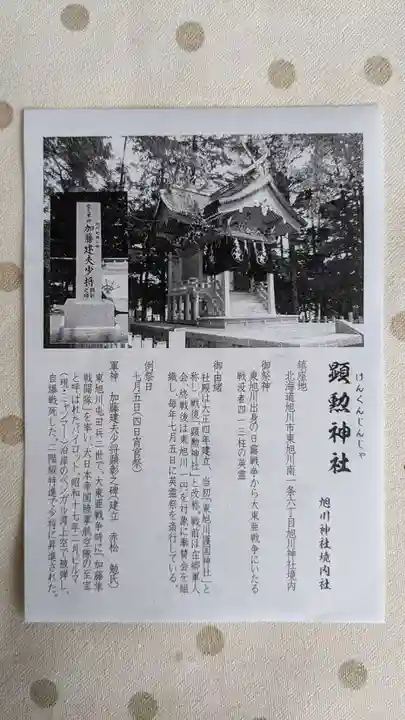 けんくんじんじゃ
顕勲神社
旭川神社境内社
鎮座地
北海道旭川市東旭川南一条六丁目旭川神社境内
御祭神
東旭川出身の日露戦争から大東亜戦争にいたる
戦没者四一三柱の英霊
御由緒
社殿は大正四年建立、当初「東旭川護国神社」と
称し、戦後「顕勲神社」と改称。戦前は在郷軍人
会、終戦後は東旭川一円を対象に奉賛会を組
織し、毎年七月五日に英霊祭を斎行している。
例祭日
七月五日(四日宵宮祭)
軍神 加藤建夫少将顕彰之碑(建立 赤松 勉氏)
東旭川屯田兵二世で、大東亜戦争時に「加藤隼
戦闘隊」を率い、大日本帝国陸軍航空隊の至宝
と呼ばれたパイロット。昭和十七年、ビルマ
(現・ミャンマー)沿岸のベンガル湾上空で被弾し、
自爆戦死した。二階級特進で少将に昇進された。
加藤建夫少将